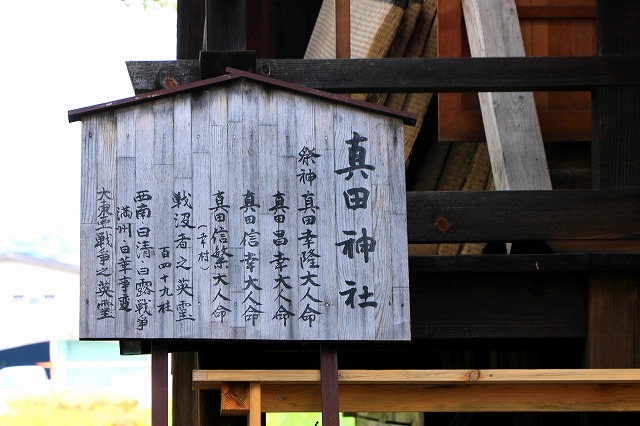 真田神社
祭神 真田幸隆大人命
真田昌幸大人命
真田信幸大人命
真田信繁大人命
(幸村)
戦没者之英霊
百四十九柱
西南・日清・日露戦争
満州・日華事変
大東亜戦争之英霊